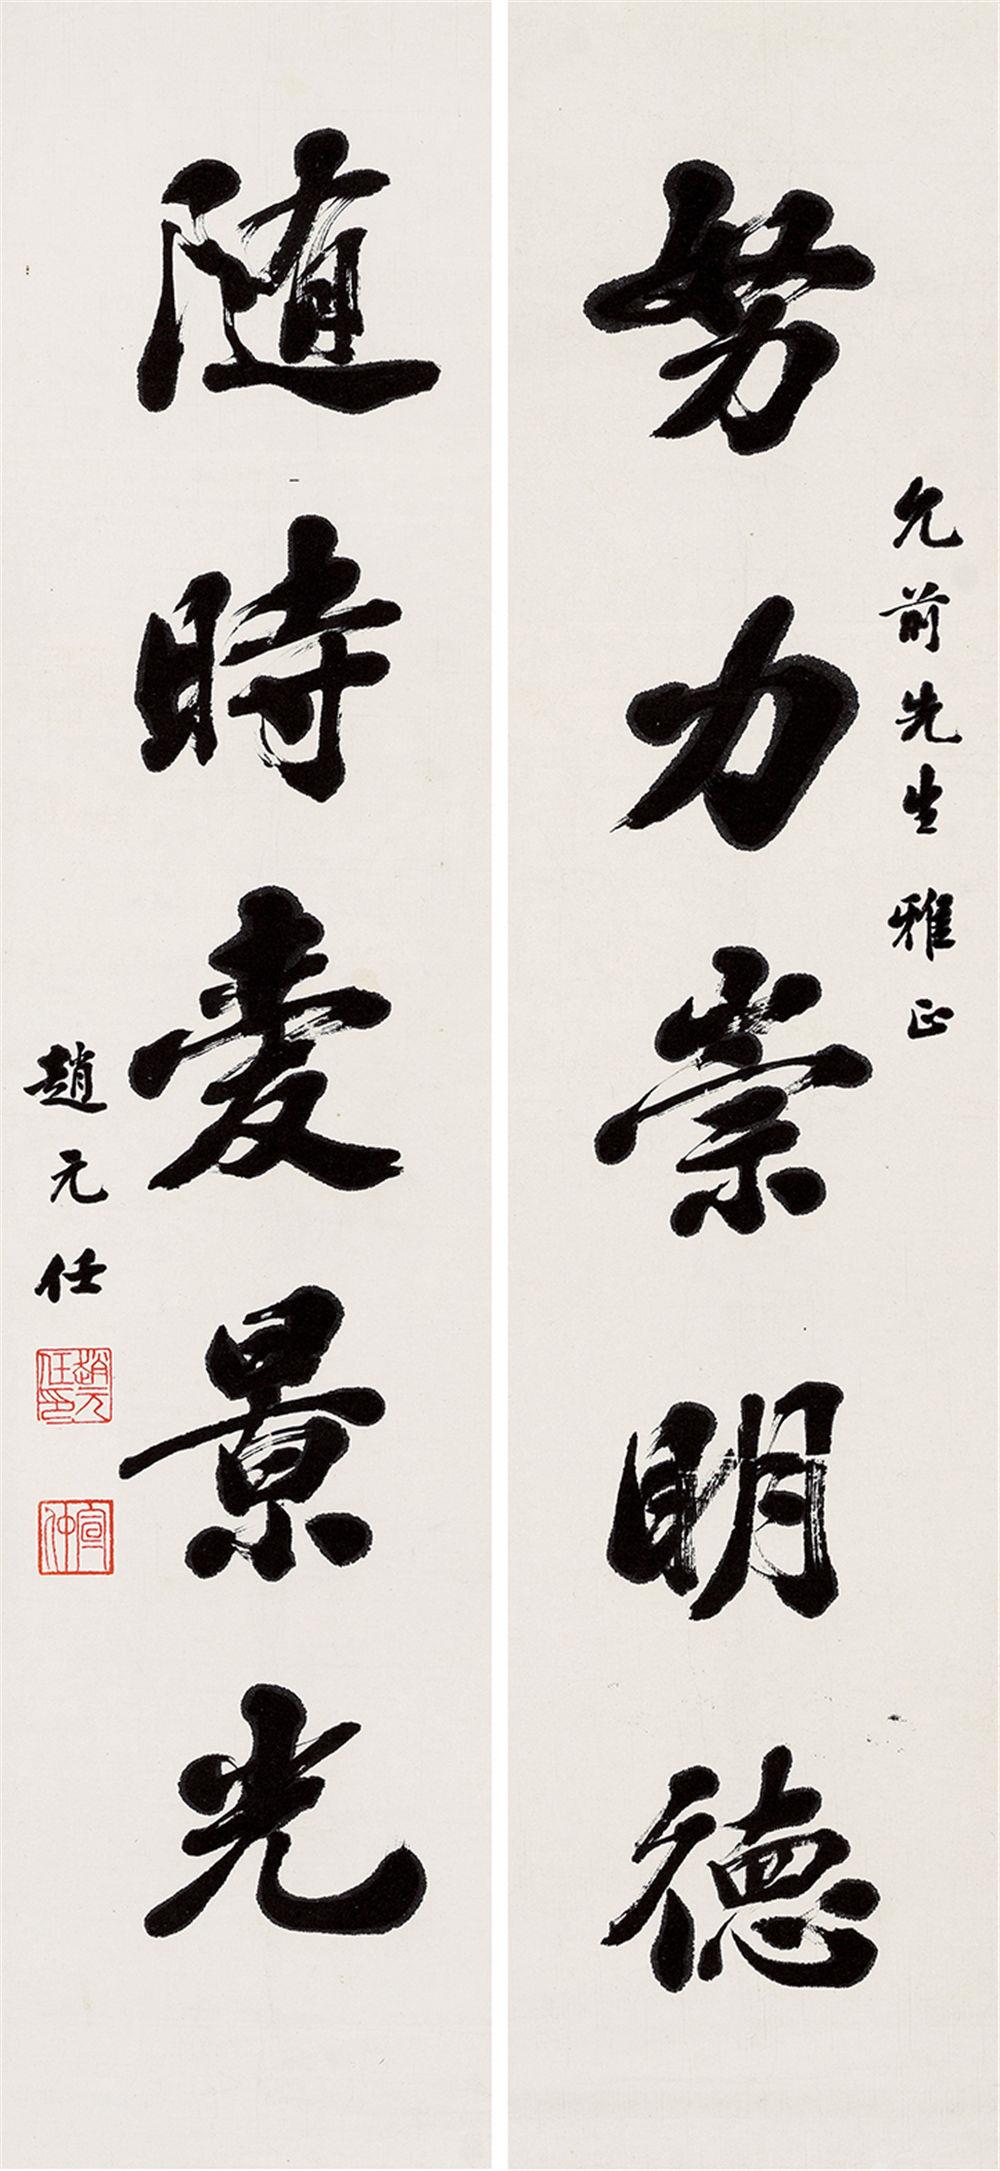 努力崇明德
允前先生雅正
随時愛景光
趙元任
趙元任印
宣仲